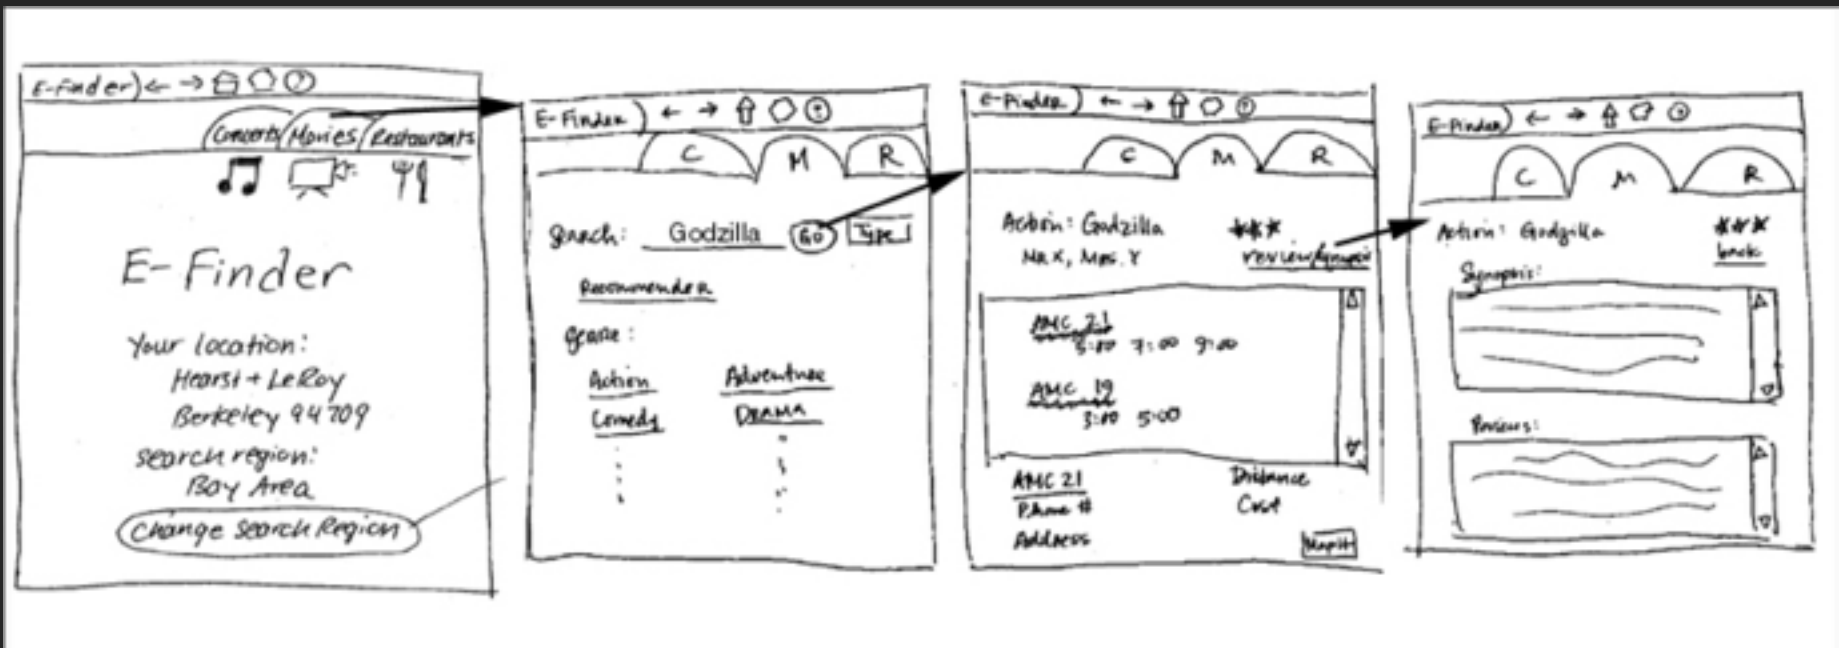 E-Finder
Concerts Movies Restaurants
E-Finder
Your location:
Hearst + LeRoy
Berkeley 94709
search region:
Bay Area
Change Search Region
E-Finder
C M R
Search: Godzilla GO Type
Recommender
Genre:
Action Adventure
Comedy DRAMA
E-Finder
C M R
Action: Godzilla ***
Mr. X, Mrs. Y review/synopsis
AMC 21
5:00 7:00 9:00
AMC 19
3:00 5:00
AMC 21 Distance
Phone # Cost
Address Map It
E-Finder
C M R
Action: Godzilla ***
back
Synopsis:
Reviews: